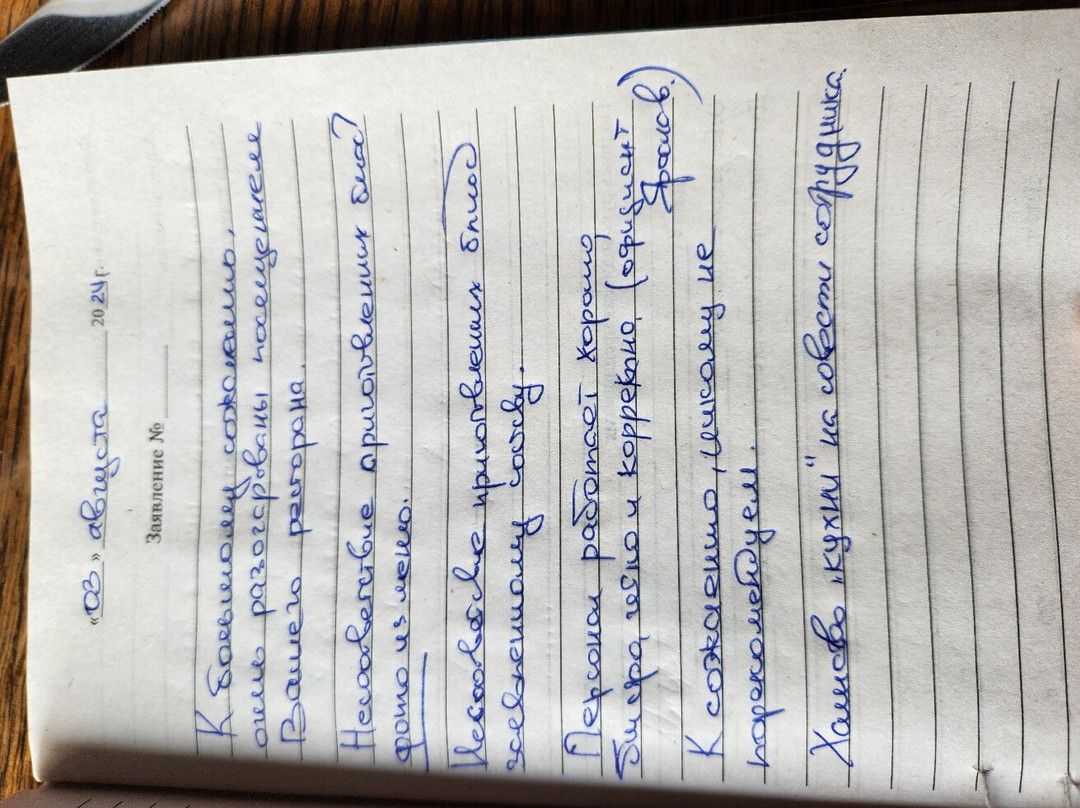 «03» августа 2024 г.
Заявление №
К большому сожалению,
очень разочарованы посещением
Вашего ресторана.
Несоответствие приготовленных блюд
фото из меню.
Несоответствие приготовленных блюд
заявленному составу.
Персонал работает хорошо,
быстро, чётко и корректно (официант
Ярослав.)
К сожалению, никому не
порекомендуем.
Хамство "кухни" на совести сотрудника.